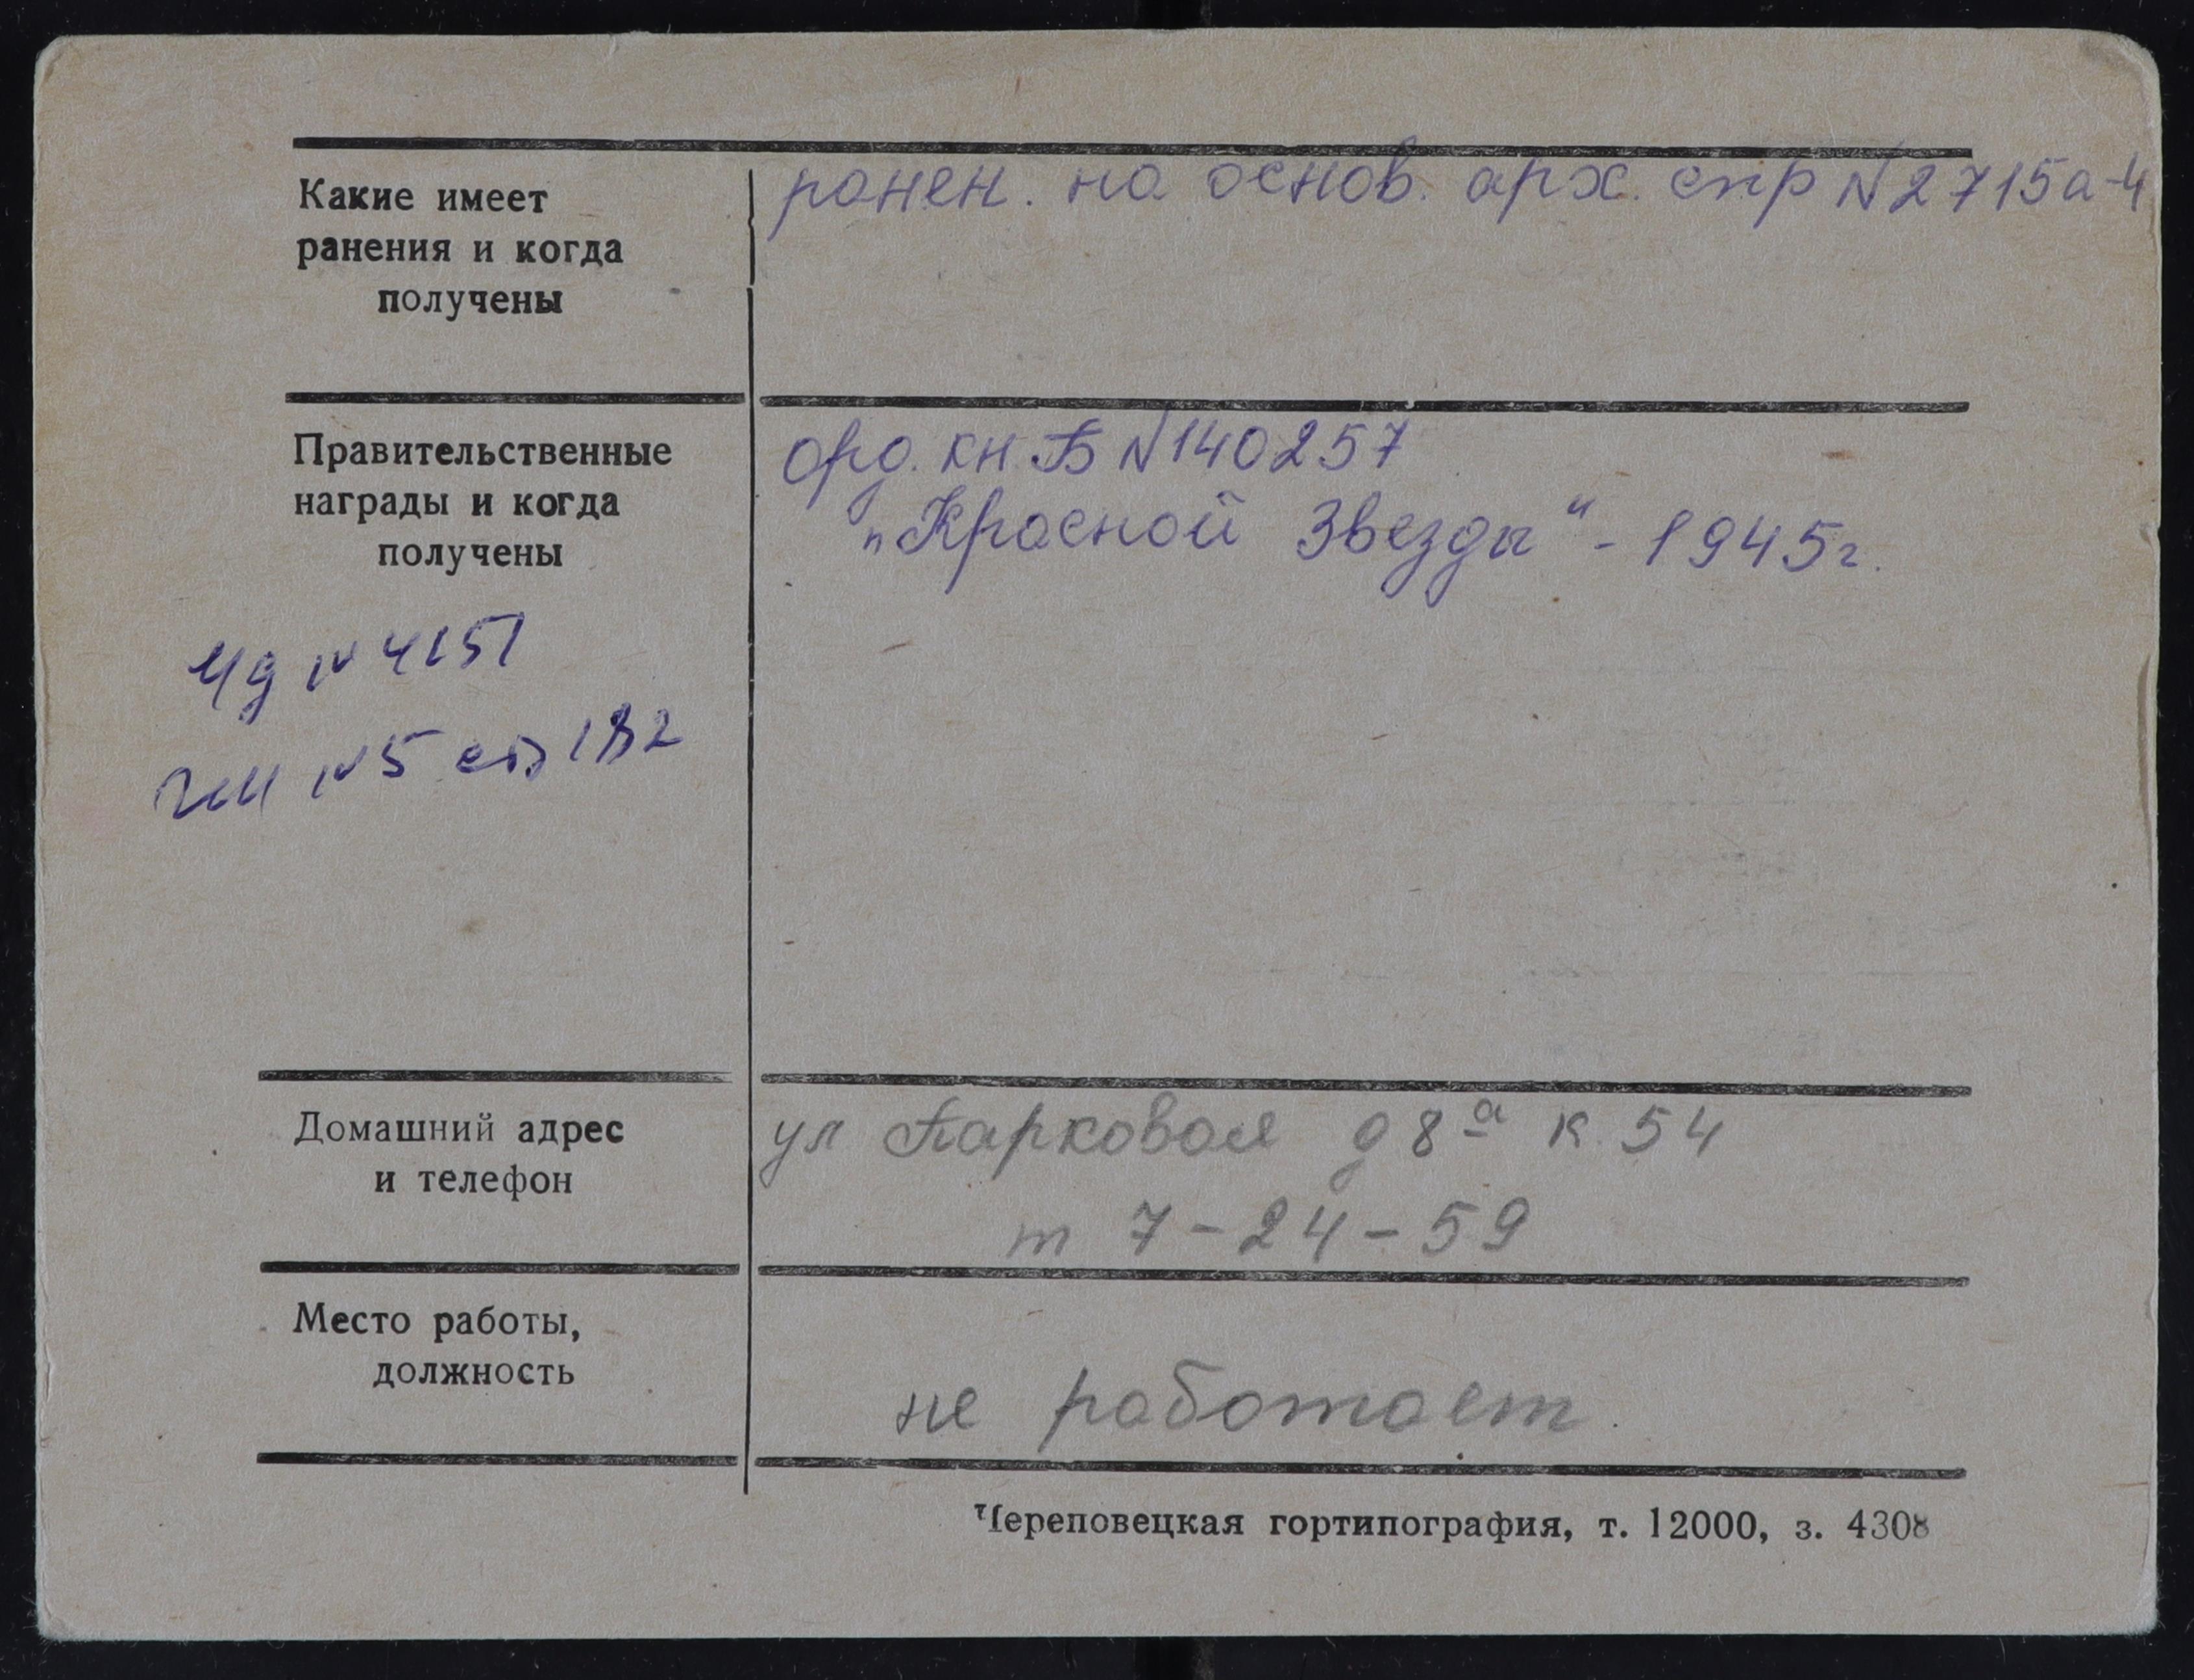 Какие имеет
ранения и когда
получены
ранен. на основ. арх. спр N 2715а-4
Правительственные
награды и когда
получены
орд. кн. Б N 140257
„Красной Звезды" - 1945г.
N 4151
N 5 стр 182
Домашний адрес
и телефон
ул Парковая д 8а к. 54
т 7-24-59
Место работы,
должность
не работает.
Череповецкая гортипография, т. 12000, з. 4308